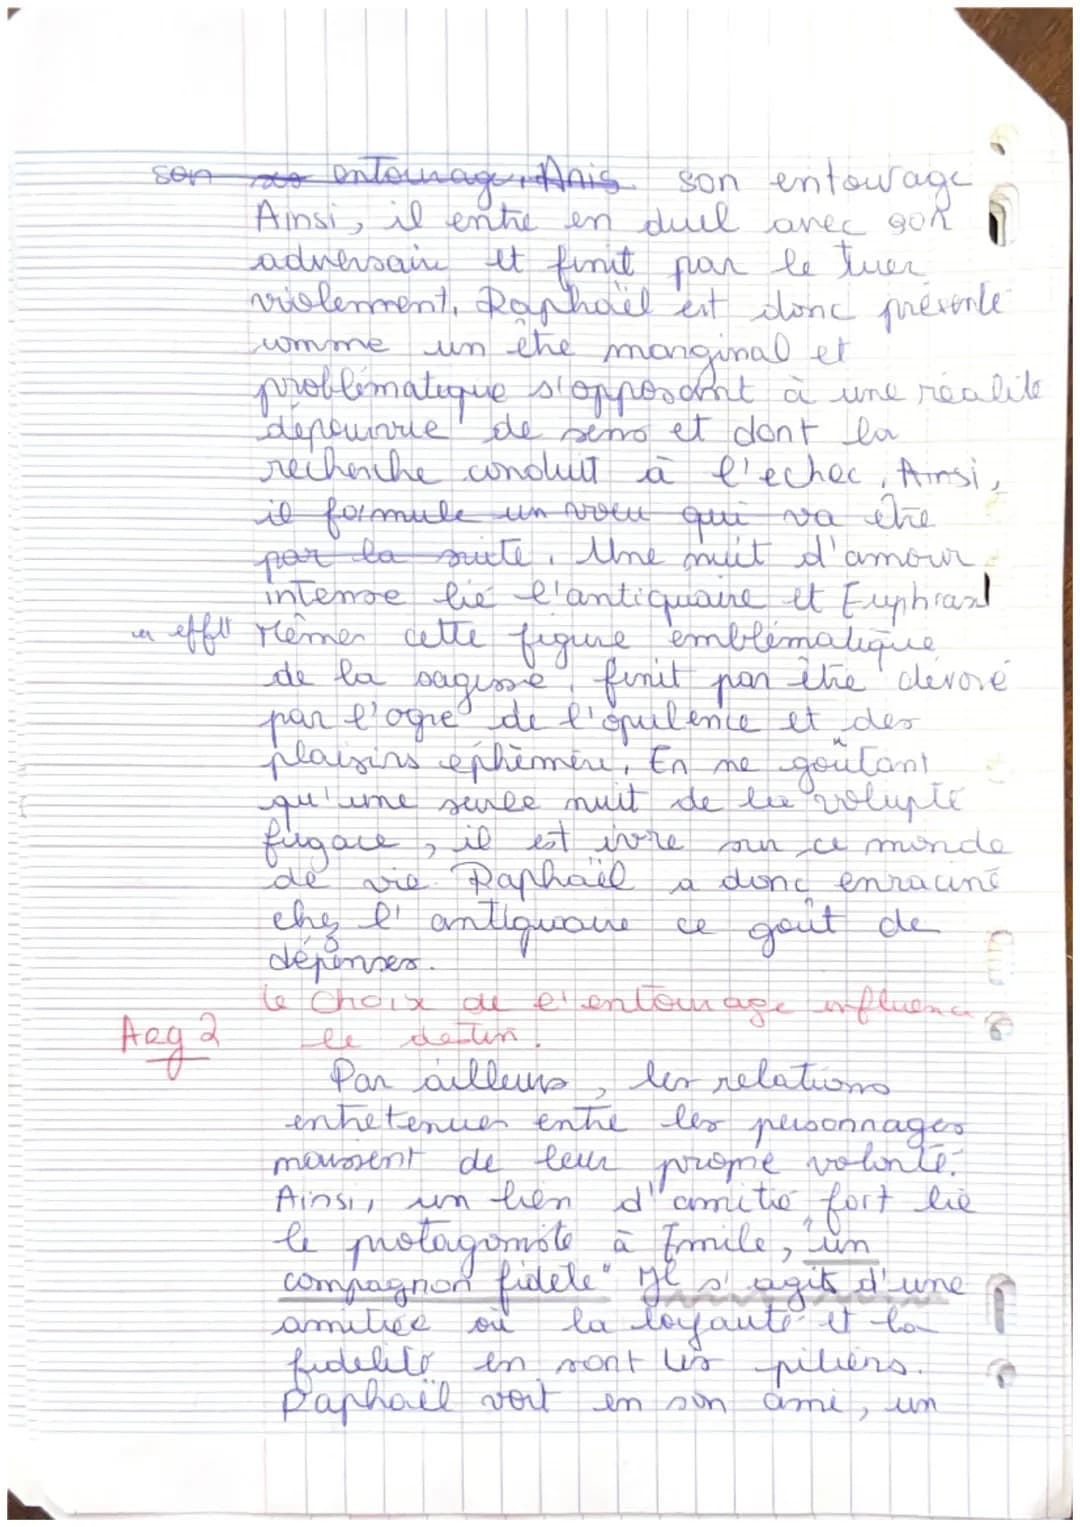 son entourage, Anis son entourage
Ainsi, il entre en duel avec son
adversaire et finit par le tuer
violemment. Raphaël est donc présenté
comme un être marginal et
problématique s'opposant à une réalité
dépourvue de sens et dont la
recherche conduit à l'echec, Ainsi,
il formule un voeu qui va être
par la suite. Une nuit d'amour
intense lié l'antiquaire et Euphrasi
en effet Même cette figure emblématique
de la sagesse, finit par être dévoré
par l'ogre de l'opulence et des
plaisirs ephèmere, En ne goûtant
qu'une seule nuit de la volupté
fugace, il est ivre sur ce monde
de vie. Raphaël a donc enraciné
chez l'antiquaire ce goût de
dépenses.
le choix de l'entourage influence
Arg 2 le destin.
Par ailleurs, les relations
entretenues entre les personnages
naissent de leur propre volonté.
Ainsi, un lien d'amitié fort lie
le protagoniste à Emile, "un
compagnon fidele" Il s'agit d'une
amitiée où la loyauté et la
fidelité en sont les piliers.
Raphaël voit en son ami, un